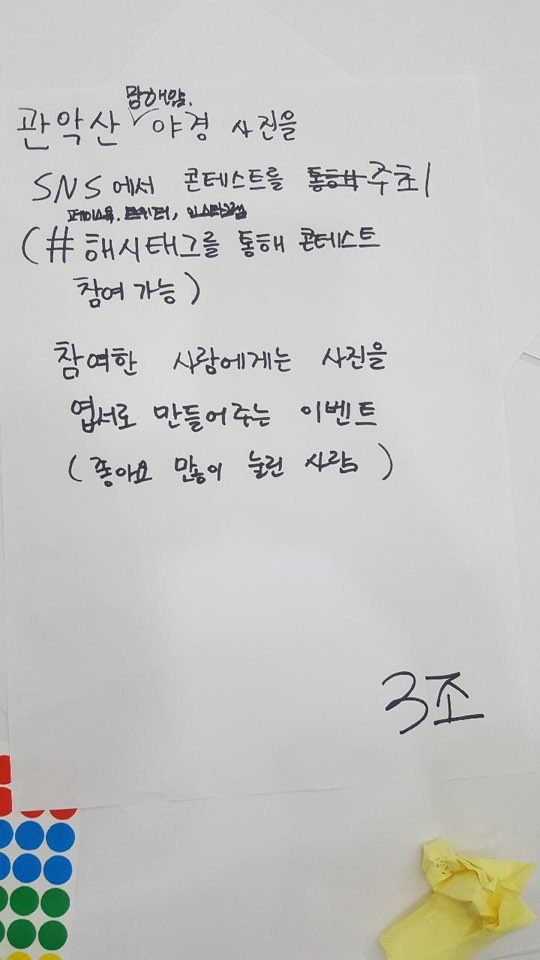 관악산 야경 사진을
SNS에서 콘테스트를 주최
페이스북, 트위터, 인스타그램
(# 해시태그를 통해 콘테스트
참여 가능)
참여한 사람에게는 사진을
엽서로 만들어주는 이벤트
(좋아요 많이 눌린 사람)
3조